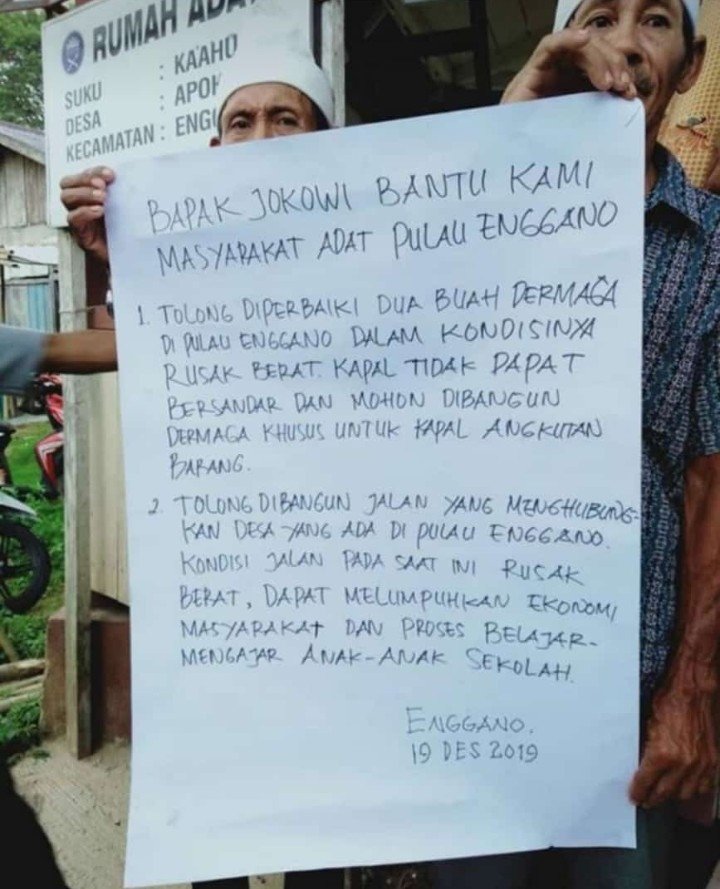 RUMAH ADA
SUKU : KAAHO
DESA : APOH
KECAMATAN : ENGG
BAPAK JOKOWI BANTU KAMI
MASYARAKAT ADAT PULAU ENGGANO
1. TOLONG DIPERBAIKI DUA BUAH DERMAGA
DI PULAU ENGGANO DALAM KONDISINYA
RUSAK BERAT. KAPAL TIDAK DAPAT
BERSANDAR DAN MOHON DIBANGUN
DERMAGA KHUSUS UNTUK KAPAL ANGKUTAN
BARANG.
2. TOLONG DIBANGUN JALAN YANG MENGHUBUNG-
KAN DESA YANG ADA DI PULAU ENGGANO.
KONDISI JALAN PADA SAAT INI RUSAK
BERAT, DAPAT MELUMPUHKAN EKONOMI
MASYARAKAT DAN PROSES BELAJAR-
MENGAJAR ANAK-ANAK SEKOLAH.
ENGGANO.
19 DES 2019